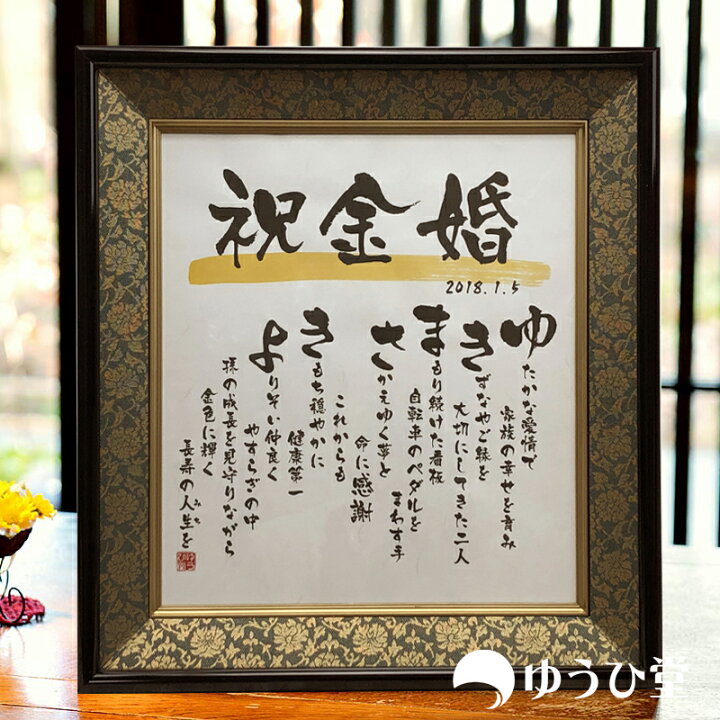 祝金婚
2018.1.5
ゆたかな愛情で
家族の幸せを育み
きずなやご縁を
大切にしてきた二人
まもり続けた看板
自転車のペダルを
まわす手
さかえゆく夢と
命に感謝
これからも
きもち穏やかに
健康第一
よりそい仲良く
やすらぎの中
孫の成長を見守りながら
金色に輝く
長寿の人生を
みち
ゆうひ堂